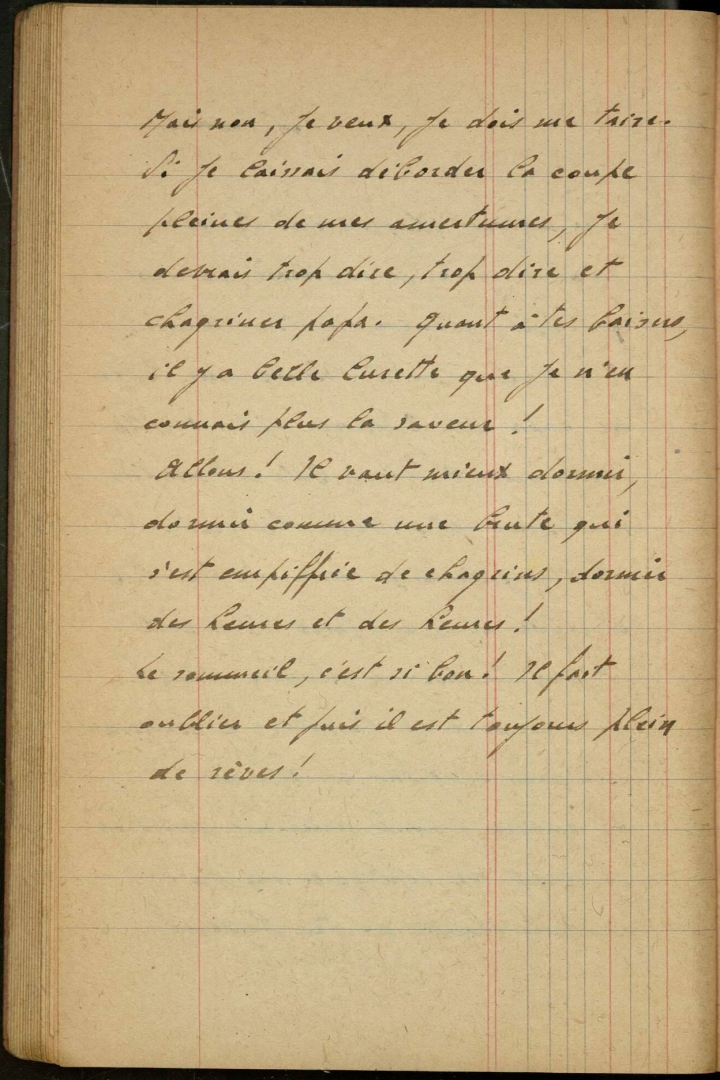 Mais non, je veux, je dois me taire.
Si je laissais déborder la coupe
pleines de mes amertumes, je
devrais trop dire, trop dire et
chagriner papa. Quant à tes baisers,
il y a belle lurette que je n'en
connais plus la saveur !
Allons ! Il vaut mieux dormir,
dormir comme une brute qui
s'est empiffrée de chagrins, dormir
des heures et des heures !
Le sommeil, c'est si bon ! Il fait
oublier et puis il est toujours plein
de rêves !